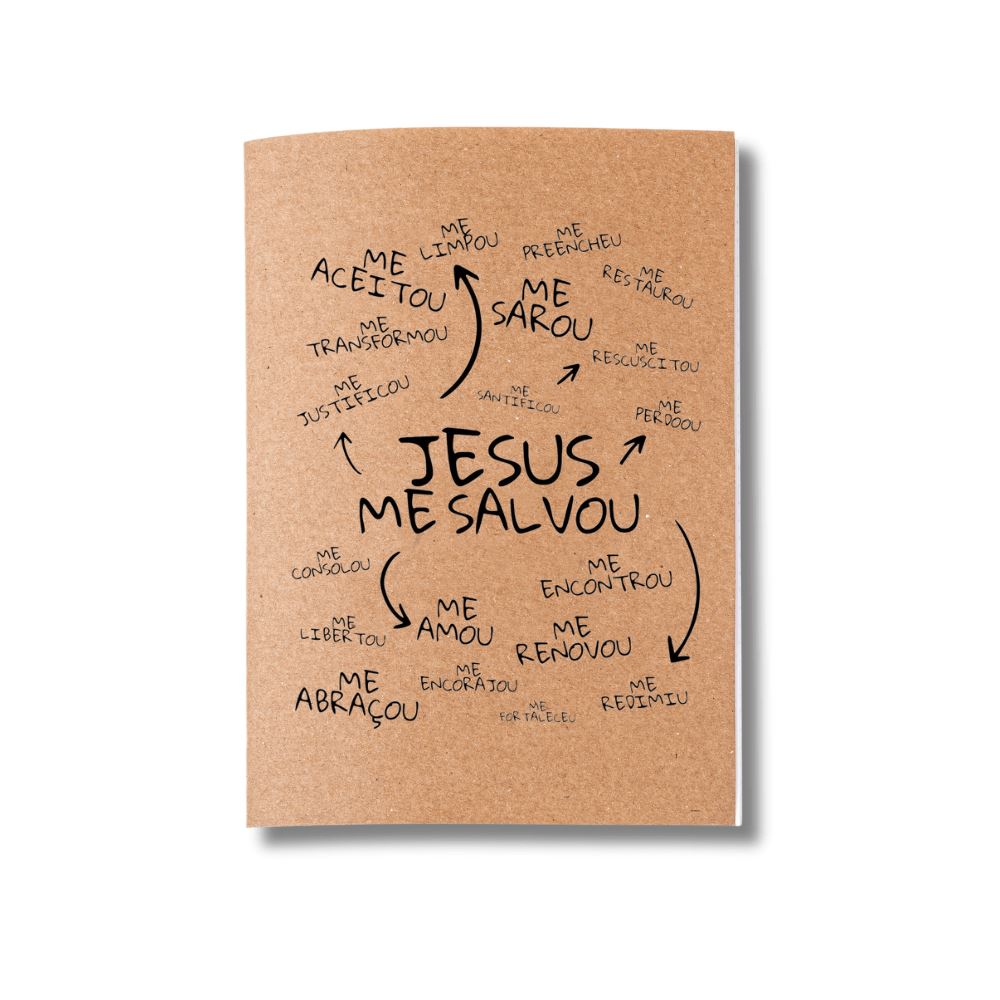 ME
LIMPOU
ME
PREENCHEU
ME
ACEITOU
ME
RESTAUROU
ME
SAROU
ME
TRANSFORMOU
ME
RESCUSCITOU
ME
JUSTIFICOU
ME
SANTIFICOU
ME
PERDOOU
JESUS
ME SALVOU
ME
CONSOLOU
ME
ENCONTROU
ME
AMOU
ME
LIBERTOU
ME
RENOVOU
ME
ENCORAJOU
ME
ABRAÇOU
ME
REDIMIU
ME
FORTALECEU